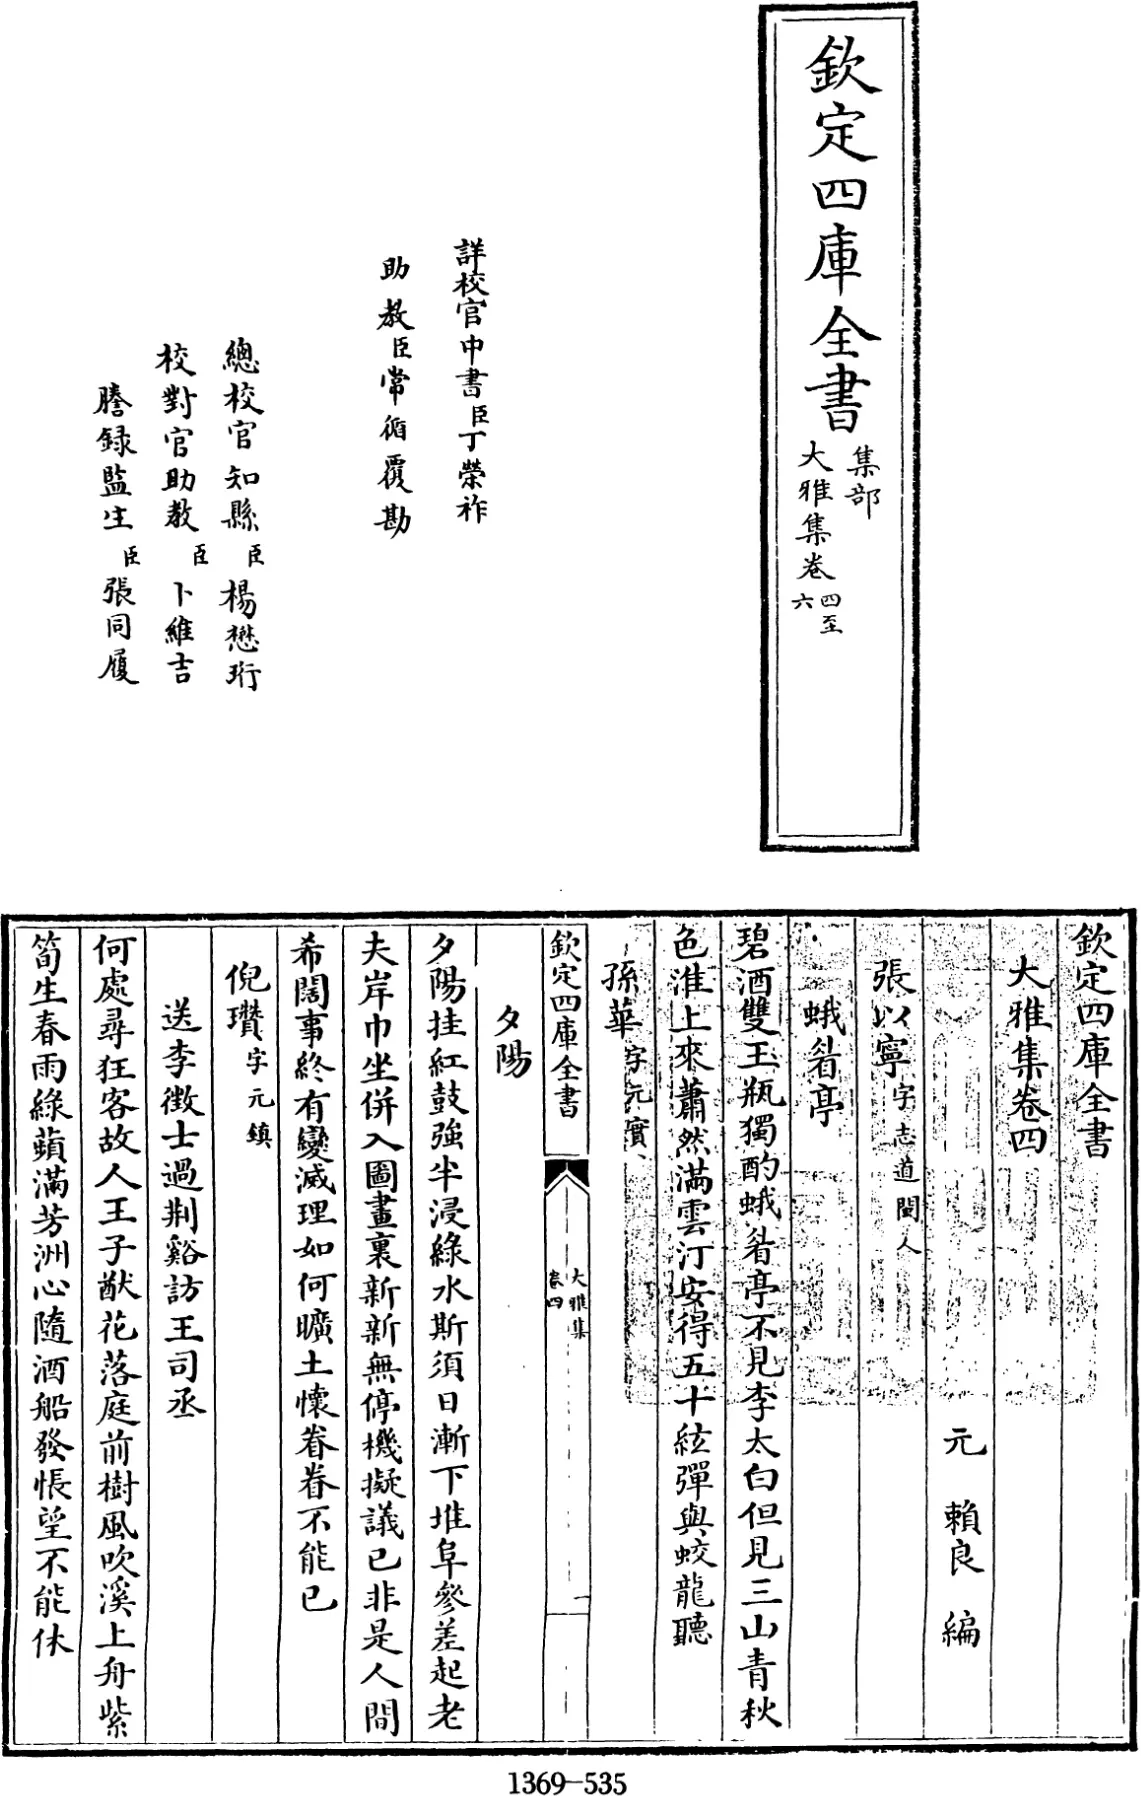 欽定四庫全書
集部
大雅集卷四至
六
詳校官中書臣丁榮祚
助教臣常循覆勘
總校官知縣臣楊懋珩
校對官助教臣卜維吉
謄録監生臣張同履
欽定四庫全書
大雅集卷四
元 賴良 編
張以寧字志道閩人
蛾眉亭
碧酒雙玉瓶獨酌蛾眉亭不見李太白但見三山青秋
色淮上來蕭然滿雲汀安得五十絃彈與蛟龍聽
孫華字元實
欽定四庫全書
大雅集
卷四
一
夕陽
夕陽挂紅鼓強半浸綠水斯須日漸下堆阜參差起老
夫岸巾坐併入圖畫裏新新無停機擬議已非是人間
希闊事終有變滅理如何曠土懷眷眷不能已
倪瓚字元鎮
送李徵士過荆谿訪王司丞
何處尋狂客故人王子猷花落庭前樹風吹溪上舟紫
筍生春雨綠蘋滿芳洲心隨酒船發悵望不能休
1369-535